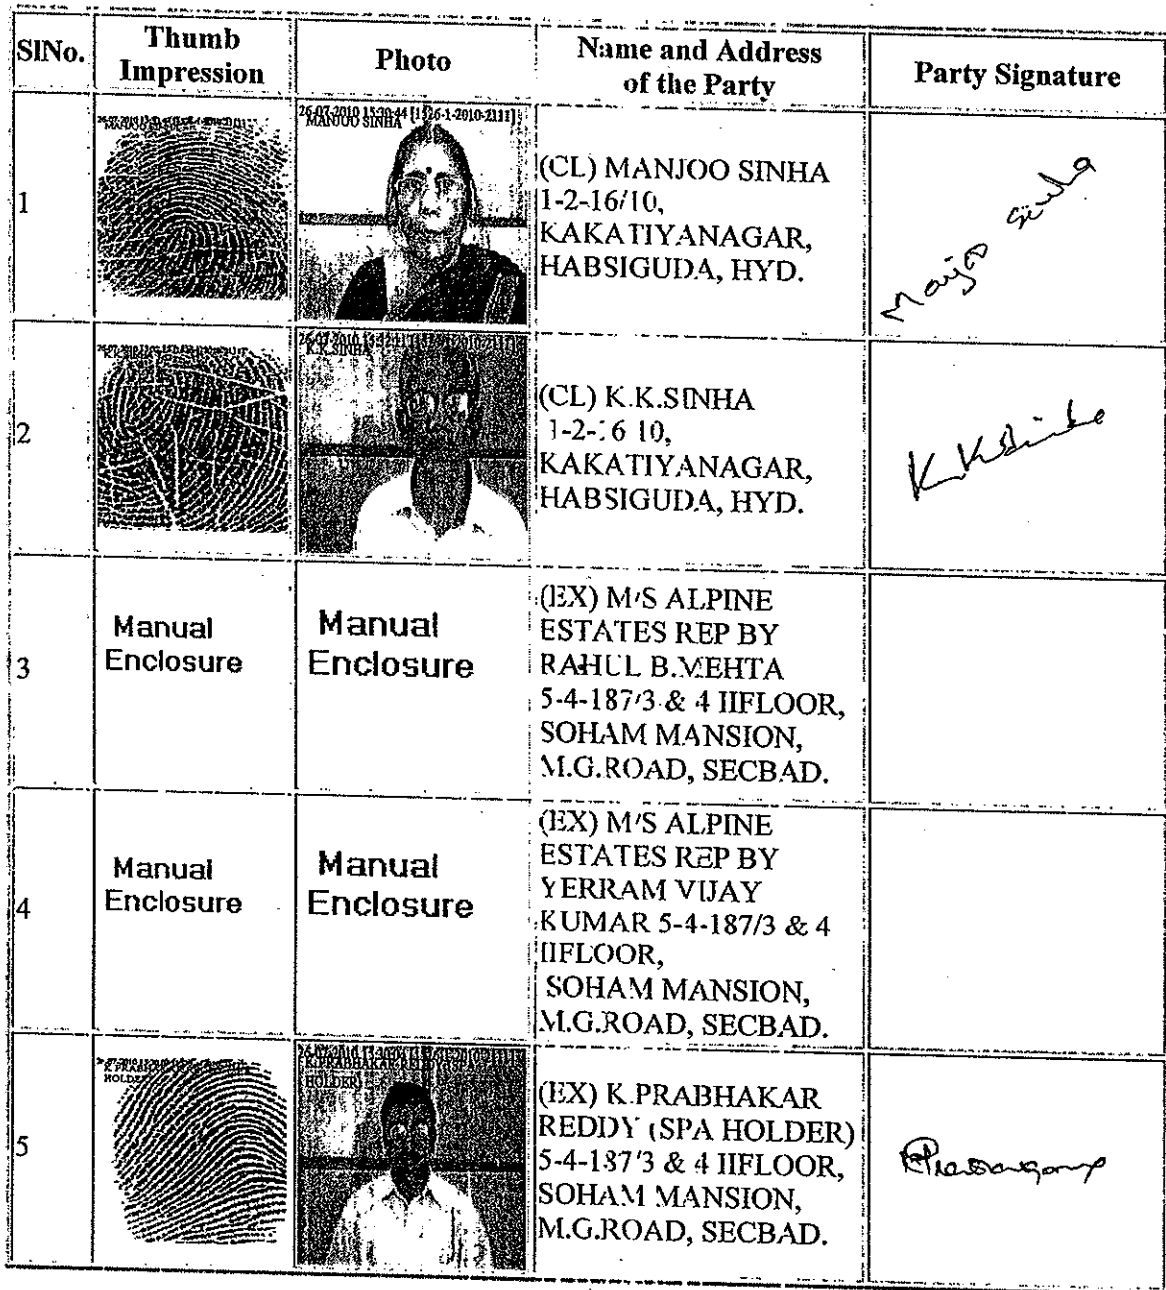 SlNo.
Thumb
Impression
Photo
Name and Address
of the Party
Party Signature
1
26-07-2010 15:30:44 [1526-1-2010-2111]
MANJOO SINHA
(CL) MANJOO SINHA
1-2-16/10,
KAKATIYANAGAR,
HABSIGUDA, HYD.
Manjoo Sinha
2
K.K.SINHA
(CL) K.K.SINHA
1-2-16 10,
KAKATIYANAGAR,
HABSIGUDA, HYD.
K K Sinha
3
Manual
Enclosure
Manual
Enclosure
(EX) M/S ALPINE
ESTATES REP BY
RAHUL B.MEHTA
5-4-187/3 & 4 IIFLOOR,
SOHAM MANSION,
M.G.ROAD, SECBAD.
4
Manual
Enclosure
Manual
Enclosure
(EX) M/S ALPINE
ESTATES REP BY
YERRAM VIJAY
KUMAR 5-4-187/3 & 4
IIFLOOR,
SOHAM MANSION,
M.G.ROAD, SECBAD.
5
HOLDER)
K.PRABHAKAR REDDY(SPA
HOLDER)
(EX) K.PRABHAKAR
REDDY (SPA HOLDER)
5-4-187/3 & 4 IIFLOOR,
SOHAM MANSION,
M.G.ROAD, SECBAD.